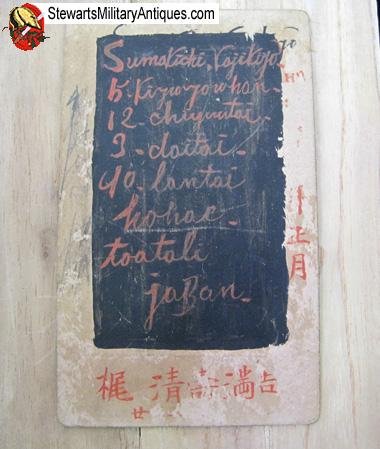 StewartsMilitaryAntiques.com
Sumakichi. Kajikiyo.
12. chiyuutai.
3. daitai.
40. lantai
kohae
toatali
japan.
正月
梶 清 満吉
廿